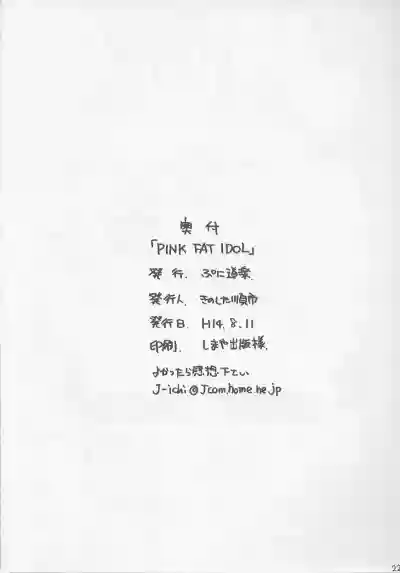 奥付
「PINK FAT IDOL」
発行. ぷに道楽
発行人. きのした順市
発行日. H14.8.11
印刷. しまや出版様.
よかったら感想下てい
J-ichi@Jcom.home.ne.jp
22